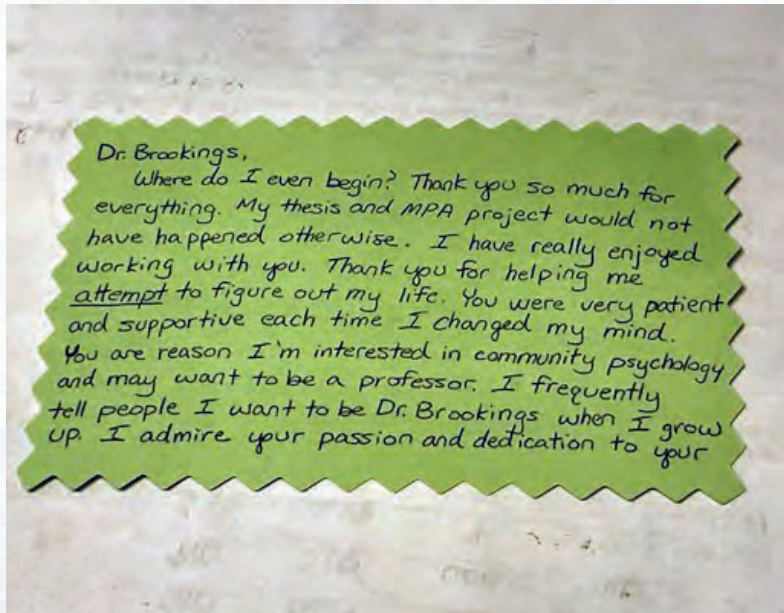 Dr. Brookings,
Where do I even begin? Thank you so much for
everything. My thesis and MPA project would not
have happened otherwise. I have really enjoyed
working with you. Thank you for helping me
attempt to figure out my life. You were very patient
and supportive each time I changed my mind.
You are reason I'm interested in community psychology
and may want to be a professor. I frequently
tell people I want to be Dr. Brookings when I grow
up. I admire your passion and dedication to your